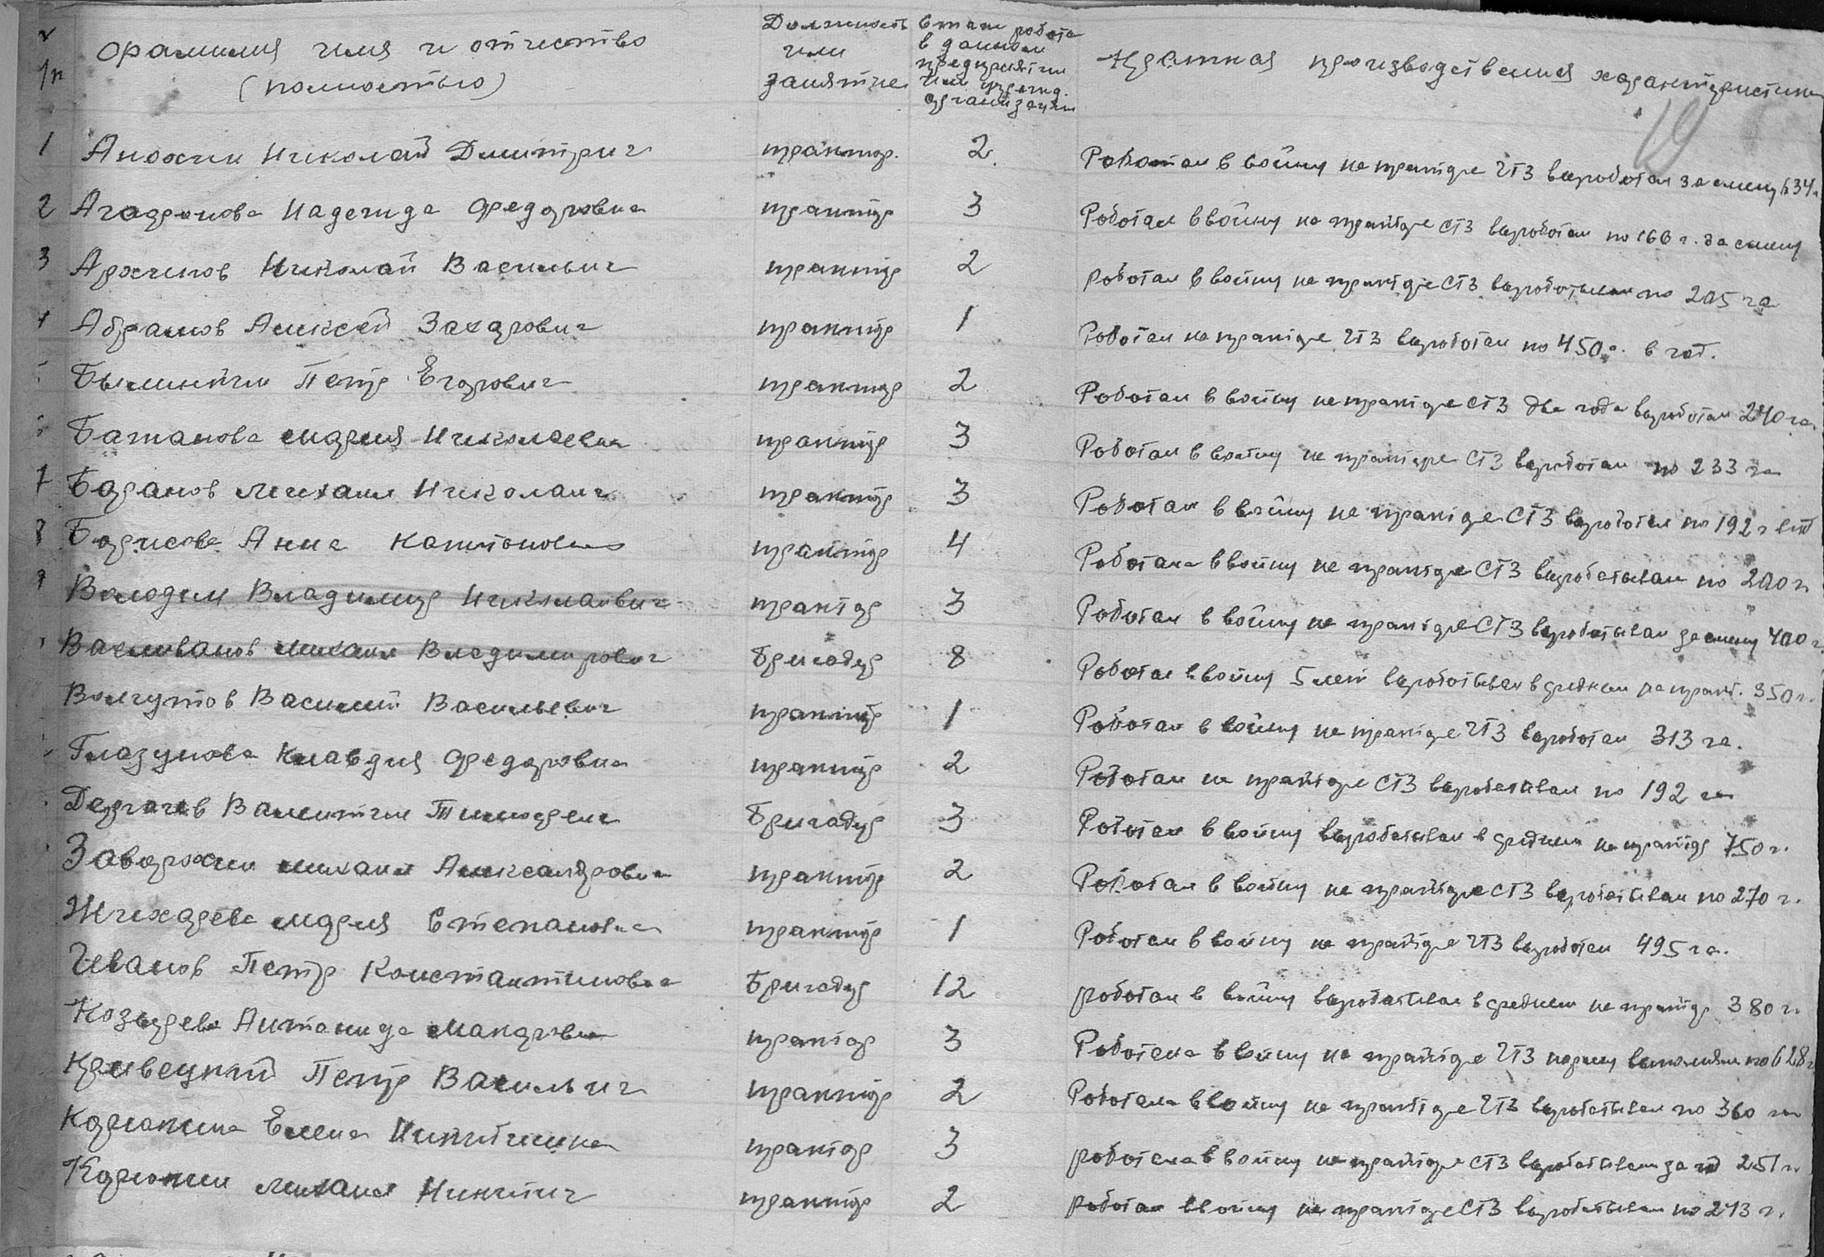 № п/п Фамилия имя и отчество (полностью) Должность или занятие Стаж работы в данном предприятии или учрежд. организации Краткая производственная характеристика
19
1 Анохин Николай Дмитрич трактор. 2 Работал в войну на тракторе ЧТЗ выработал за смену 634 г
2 Агафонова Надежида Федоровна трактор 3 Работал в войну на тракторе СТЗ выработал по 166 г. за смену
3 Архипов Николай Васильвич трактор 2 работал в войну на тракторе СТЗ выработывал по 205 га
4 Абрамов Алексей Захарович трактор 1 Работал на тракторе ЧТЗ выработал по 450 г. в год.
Былинкин Петр Егорович трактор 2 Работал в войну на тракторе СТЗ два года выработал 240 га.
Батанова Мария Николаевна трактор 3 Работал в войну на тракторе СТЗ выработал по 233 га
7 Баранов Михаил Николаич трактор 3 Работал в войну на тракторе СТЗ выработал по 192 г в год
8 Борисова Анна Капитоновна трактор 4 Работала в войну на тракторе СТЗ выработывал по 200 г
9 Володин Владимир Николаевич трактор 3 Работал в войну на тракторе СТЗ выработывал за смену 400 г.
Михаил Владимирович Бригадир 8 Работал в войну 5 лет выработывал в среднем на тракт. 350 г.
Волгутов Василий Васильевич трактор 1 Работал в войну на тракторе ЧТЗ выработал 313 га.
Глазунова Клавдия Федоровна трактор 2 Работал на тракторе СТЗ выработывал по 192 га
Дергачев Валентин Тимофеич Бригадир 3 Работал в войну выработывал в среднем на трактор 750 г.
Заворохин Михаил Александрович трактор 2 Работал в войну на тракторе СТЗ выработывал по 270 г.
Жихарева Мария Степановна трактор 1 Работал в войну на тракторе ЧТЗ выработал 495 га.
Иванов Петр Константинович Бригадир 12 работал в войну выработывал в среднем на трактор 380 г.
Козырева Антанида Макаровна трактор 3 Работала в войну на тракторе ЧТЗ норму выполняла по 628 г
Кривецкий Петр Васильвич трактор 2 Работала в войну на тракторе ЧТЗ выработывал по 360 га
Корюкина Елена Никитична трактор 3 работала в войну на тракторе СТЗ выработывал за год 251 г.
Корюкин Михаил Никитич трактор 2 работал в войну на тракторе СТЗ выработывал по 243 г.